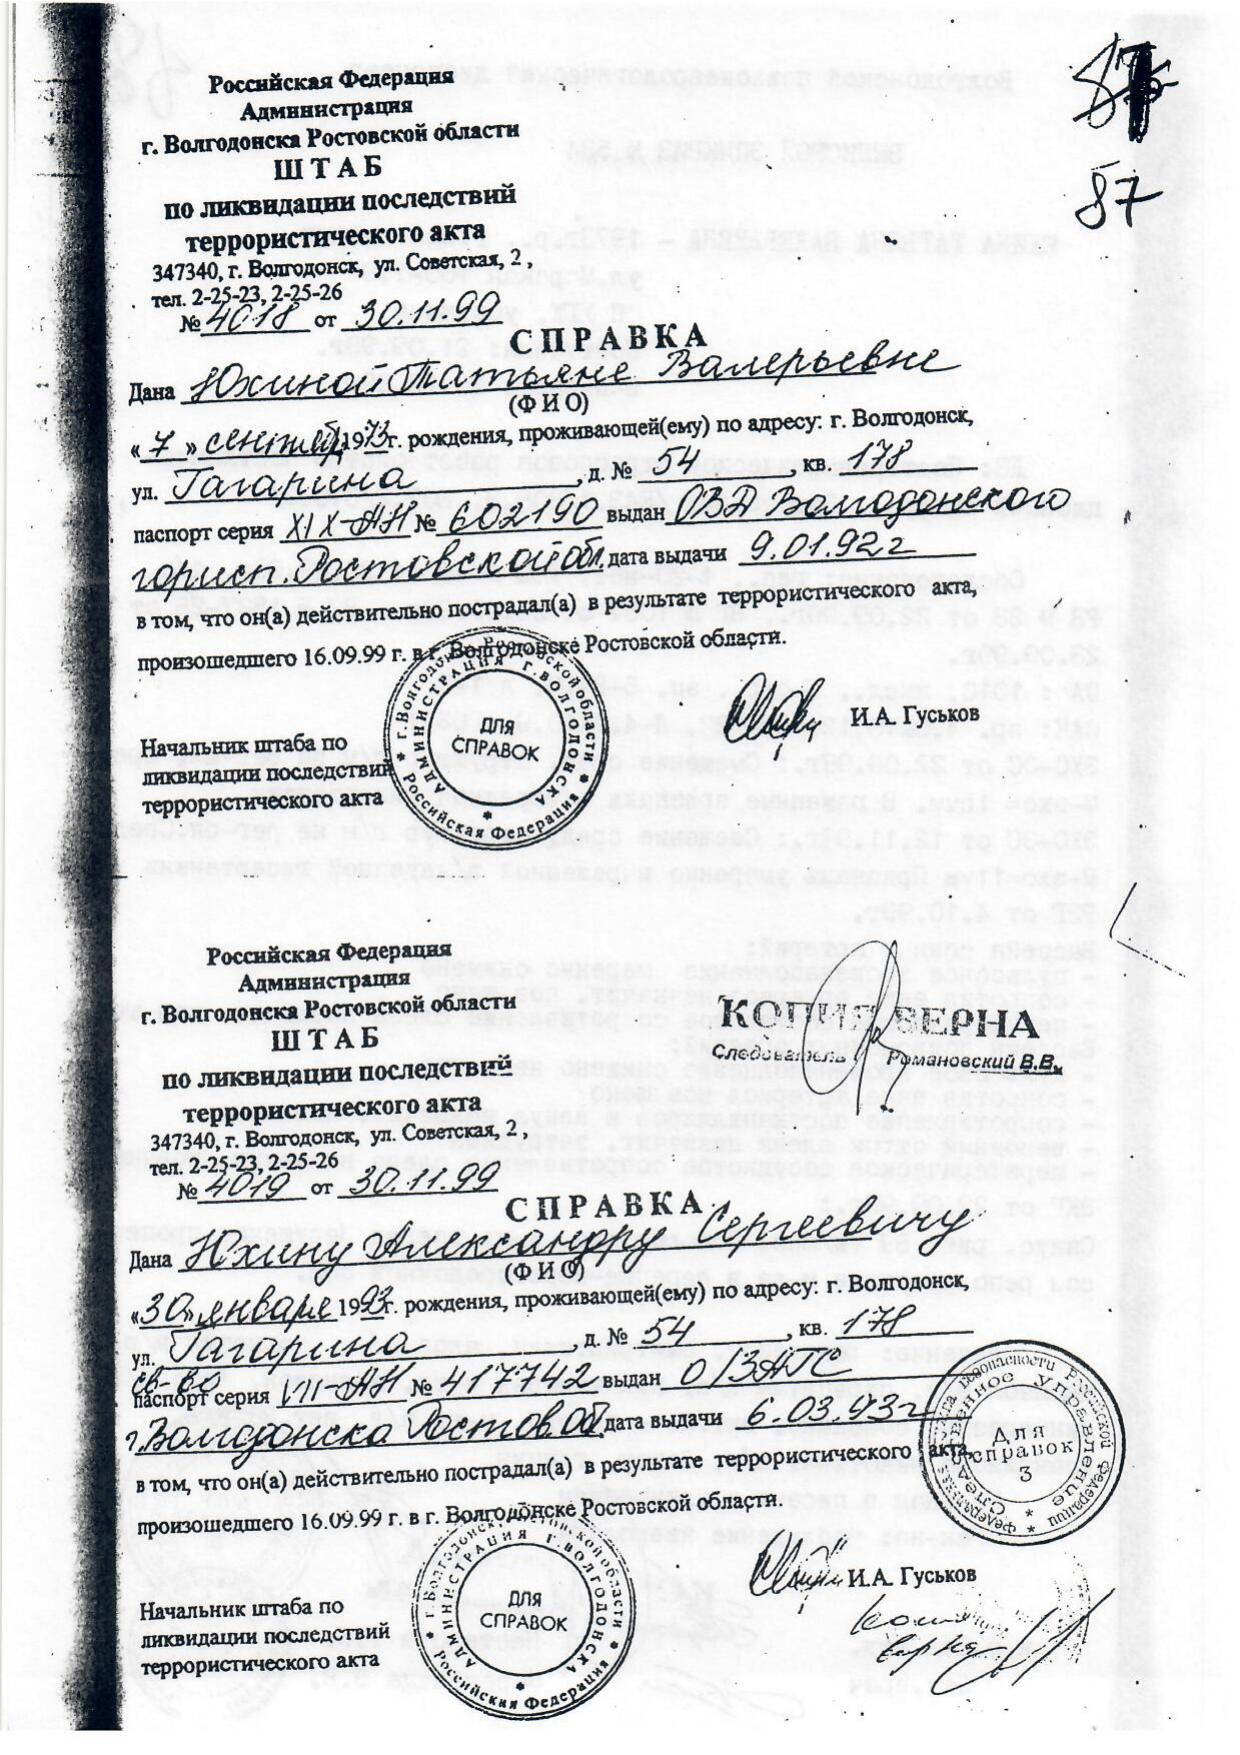 87
Российская Федерация
Администрация
г. Волгодонска Ростовской области
ШТАБ
по ликвидации последствий
террористического акта
347340, г. Волгодонск, ул. Советская, 2 ,
тел. 2-25-23, 2-25-26
№ 4018 от 30.11.99
СПРАВКА
Дана Юхиной Татьяне Валерьевне
(Ф И О)
« 7 » сентяб 1973г. рождения, проживающей(ему) по адресу: г. Волгодонск,
ул. Гагарина , д. № 54 , кв. 178
паспорт серия XIX-АН № 602190 выдан ОВД Волгодонского
горисп. Ростовской обл. дата выдачи 9.01.92 г
в том, что он(а) действительно пострадал(а) в результате террористического акта,
произошедшего 16.09.99 г. в г. Волгодонске Ростовской области.
И.А. Гуськов
Начальник штаба по
ликвидации последствий
террористического акта
* г. Волгодонск Ростовской области * Российская Федерация
АДМИНИСТРАЦИЯ Г. ВОЛГОДОНСКА *
ДЛЯ
СПРАВОК
Российская Федерация
Администрация
г. Волгодонска Ростовской области
ШТАБ
по ликвидации последствий
террористического акта
347340, г. Волгодонск, ул. Советская, 2 ,
тел. 2-25-23, 2-25-26
№ 4019 от 30.11.99
КОПИЯ ВЕРНА
Следователь Романовский В.В.
СПРАВКА
Дана Юхину Александру Сергеевичу
(Ф И О)
«30» января 1993г. рождения, проживающей(ему) по адресу: г. Волгодонск,
ул. Гагарина , д. № 54 , кв. 178
св-во
паспорт серия VIII-АН № 417742 выдан ОЗАГС
г. Волгодонска Ростов. об. дата выдачи 6.03.93 г
в том, что он(а) действительно пострадал(а) в результате террористического акта,
произошедшего 16.09.99 г. в г. Волгодонске Ростовской области.
Следственное Управление
Для
справок
3
И.А. Гуськов
Начальник штаба по
ликвидации последствий
террористического акта
* г. Волгодонск Ростовской области * Российская Федерация
АДМИНИСТРАЦИЯ Г. ВОЛГОДОНСКА *
ДЛЯ
СПРАВОК
копия
верна